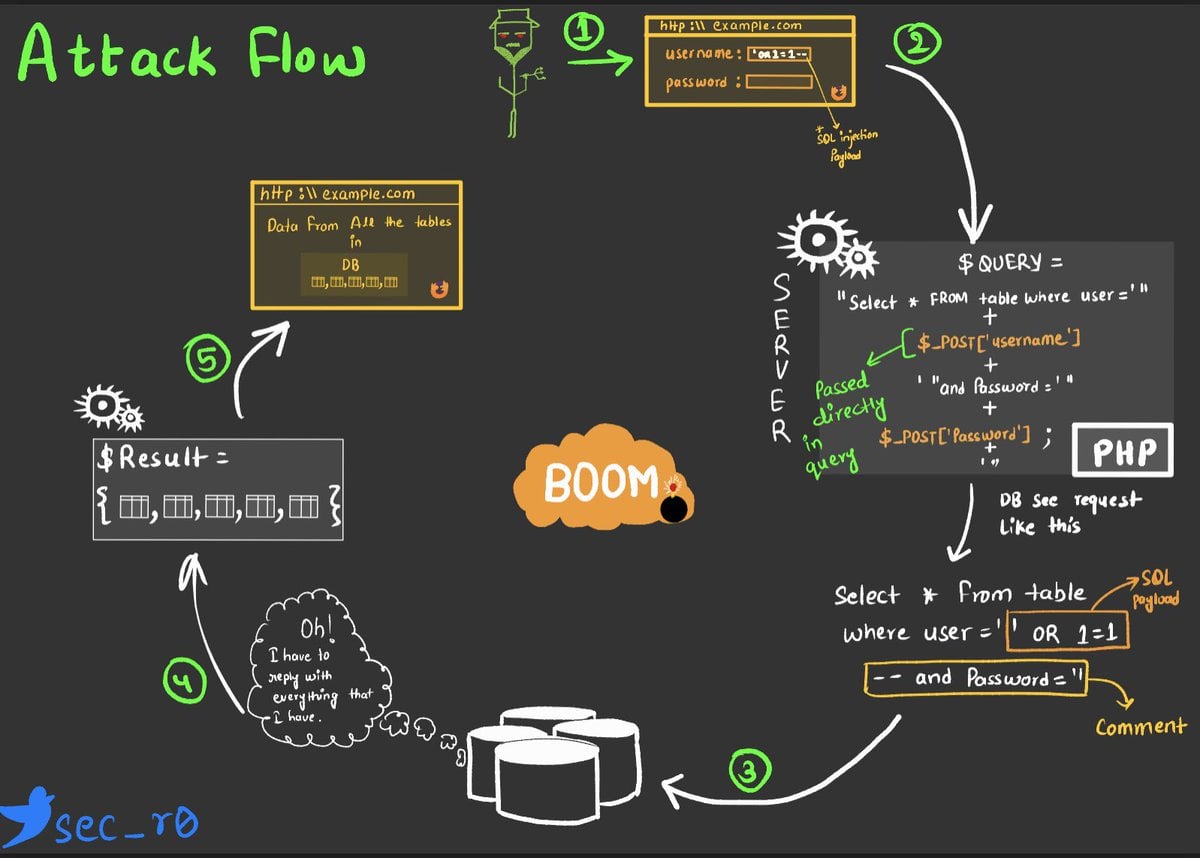 Attack Flow
1
http :\\ example.com
username : ' or 1=1--
password :
* SQL injection
Payload
2
SERVER
$ QUERY =
"Select * FROM table where user = ' "
+
[ $_POST['username']
+
' "and Password = ' "
+
$_POST['Password'] ;
+
' "
Passed
directly
in
query
PHP
DB see request
Like this
Select * From table
where user = ' ' OR 1=1
SQL
payload
-- and Password = ''
Comment
3
Oh!
I have to
reply with
everything that
I have.
4
$ Result =
{ , , , , }
5
http :\\ example.com
Data From All the tables
in
DB
, , , ,
BOOM
sec_r0